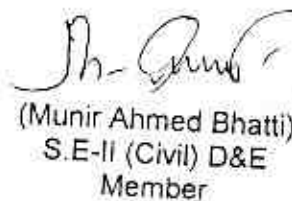 (Munir Ahmed Bhatti)
S.E-II (Civil) D&E
Member